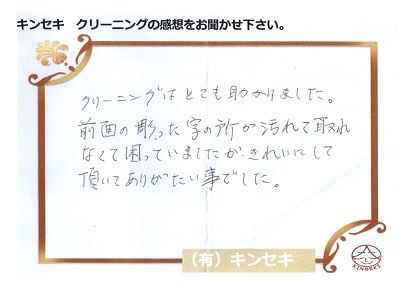 キンセキ　クリーニングの感想をお聞かせ下さい。
クリーニングはとても助かりました。
前面の彫った字の所が汚れて取れ
なくて困っていましたが、きれいにして
頂いてありがたい事でした。
（有）キンセキ
KINSEKI